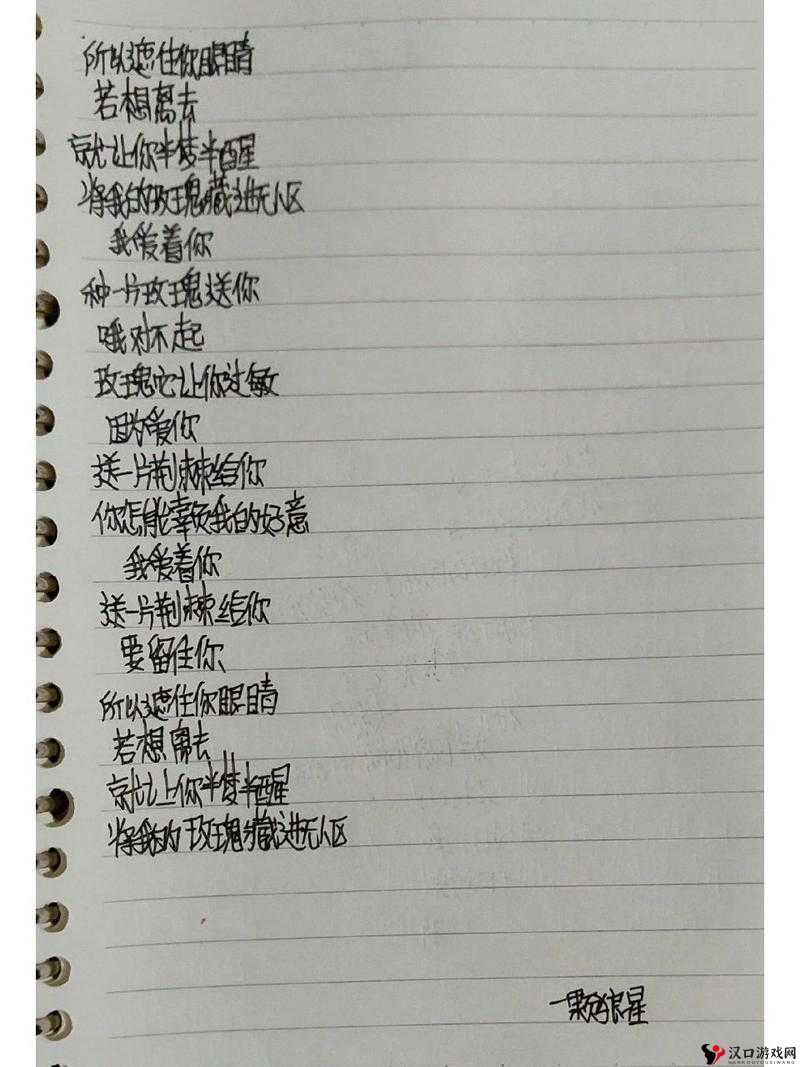 所以遮住你眼睛
若想离去
就让你半梦半醒
将我的玫瑰藏进无人区
我爱着你
种一片玫瑰送你
哦对不起
玫瑰它让你过敏
因为爱你
送一片荆棘给你
你怎能辜负我的好意
我爱着你
送一片荆棘给你
要留住你
所以遮住你眼睛
若想离去
就让你半梦半醒
将我的玫瑰藏进无人区
一颗狼星
汉口游戏网
HANKOUYOUXIWANG